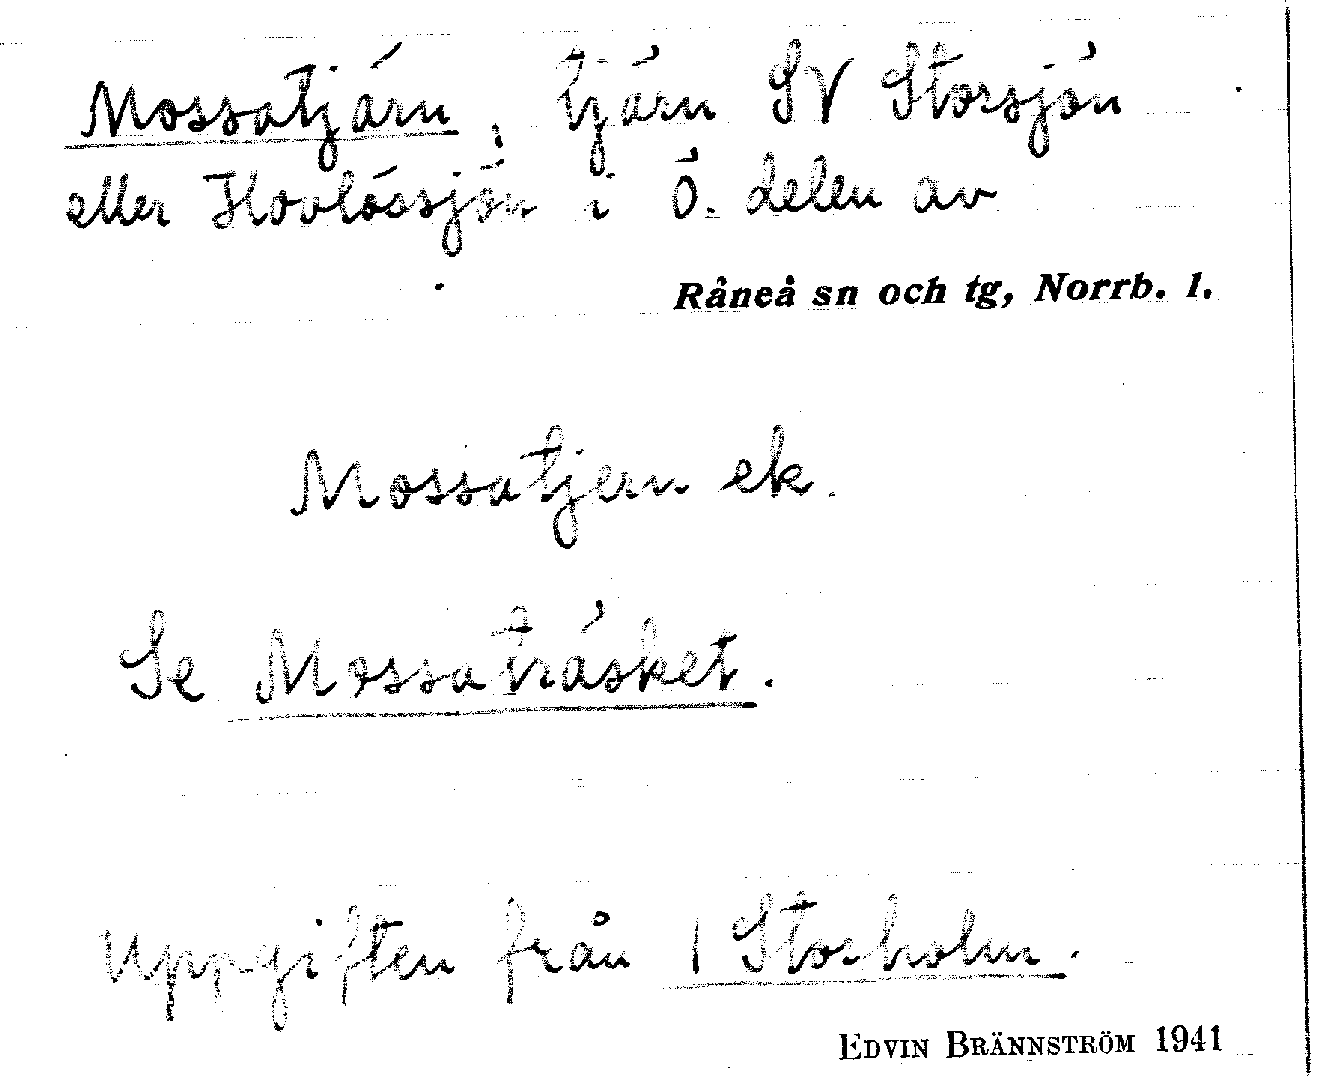 Mossatjärn, tjärn SV Storsjön
eller Hovlössjön i Ö. delen av
Råneå sn och tg, Norrb. l.
Mossatjern ek.
Se Mossaträsket.
Uppgiften från 1 Storholm.
EDVIN BRÄNNSTRÖM 1941